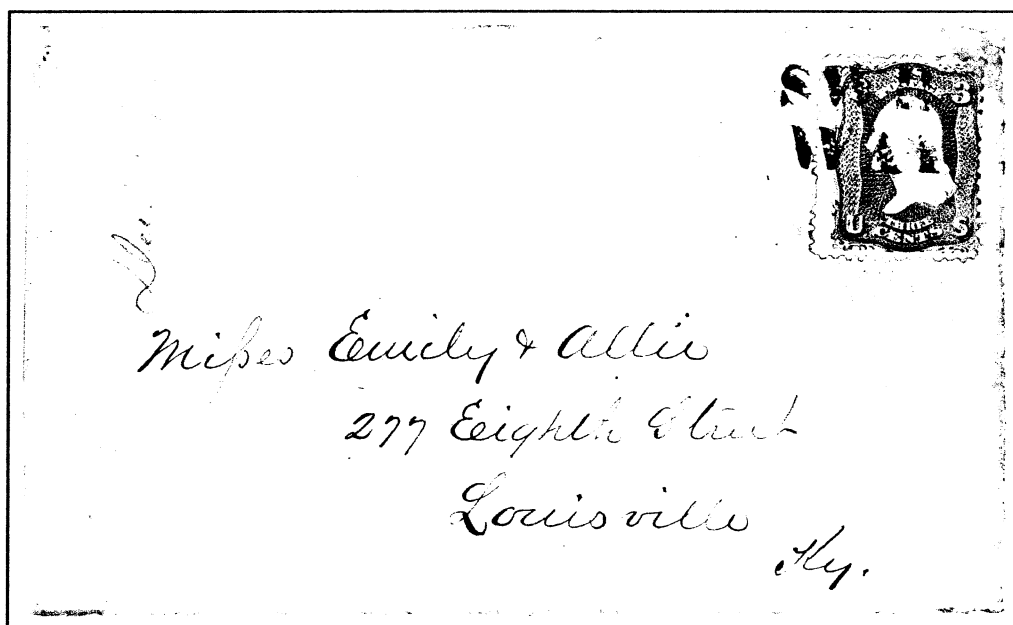 Misses Emily & Allie
277 Eighth Street
Louisville
Ky.